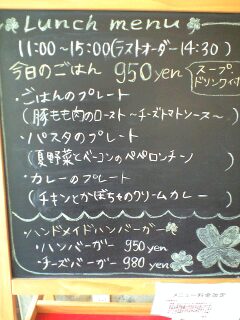 Lunch menu
11:00～15:00(ラストオーダー14:30)
今日のごはん 950yen スープ ドリンク付
・ごはんのプレート
(豚もも肉のロースト～チーズトマトソース～)
・パスタのプレート
(夏野菜とベーコンのペペロンチーノ)
・カレーのプレート
(チキンとかぼちゃのクリームカレー)
・ハンドメイドハンバーガー
・ハンバーガー 950yen
・チーズバーガー 980yen